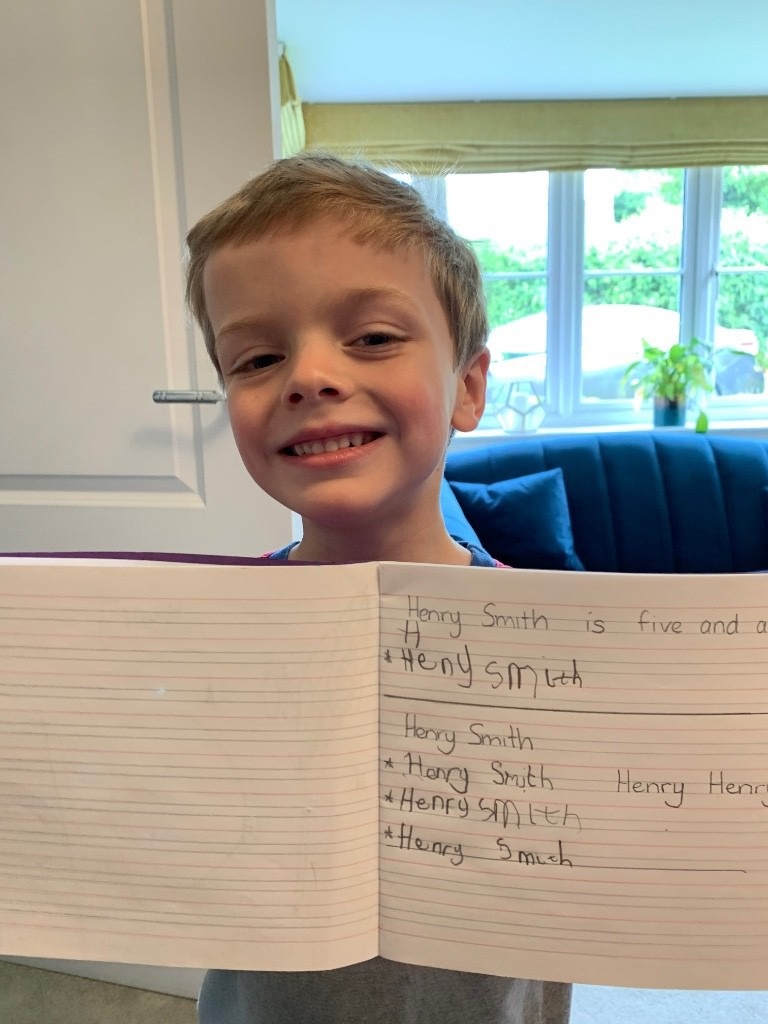 Henry Smith is five and a
H
* Heny smith
Henry Smith
* Henry Smith Henry Henry
* Henry smith
* Henry Smith